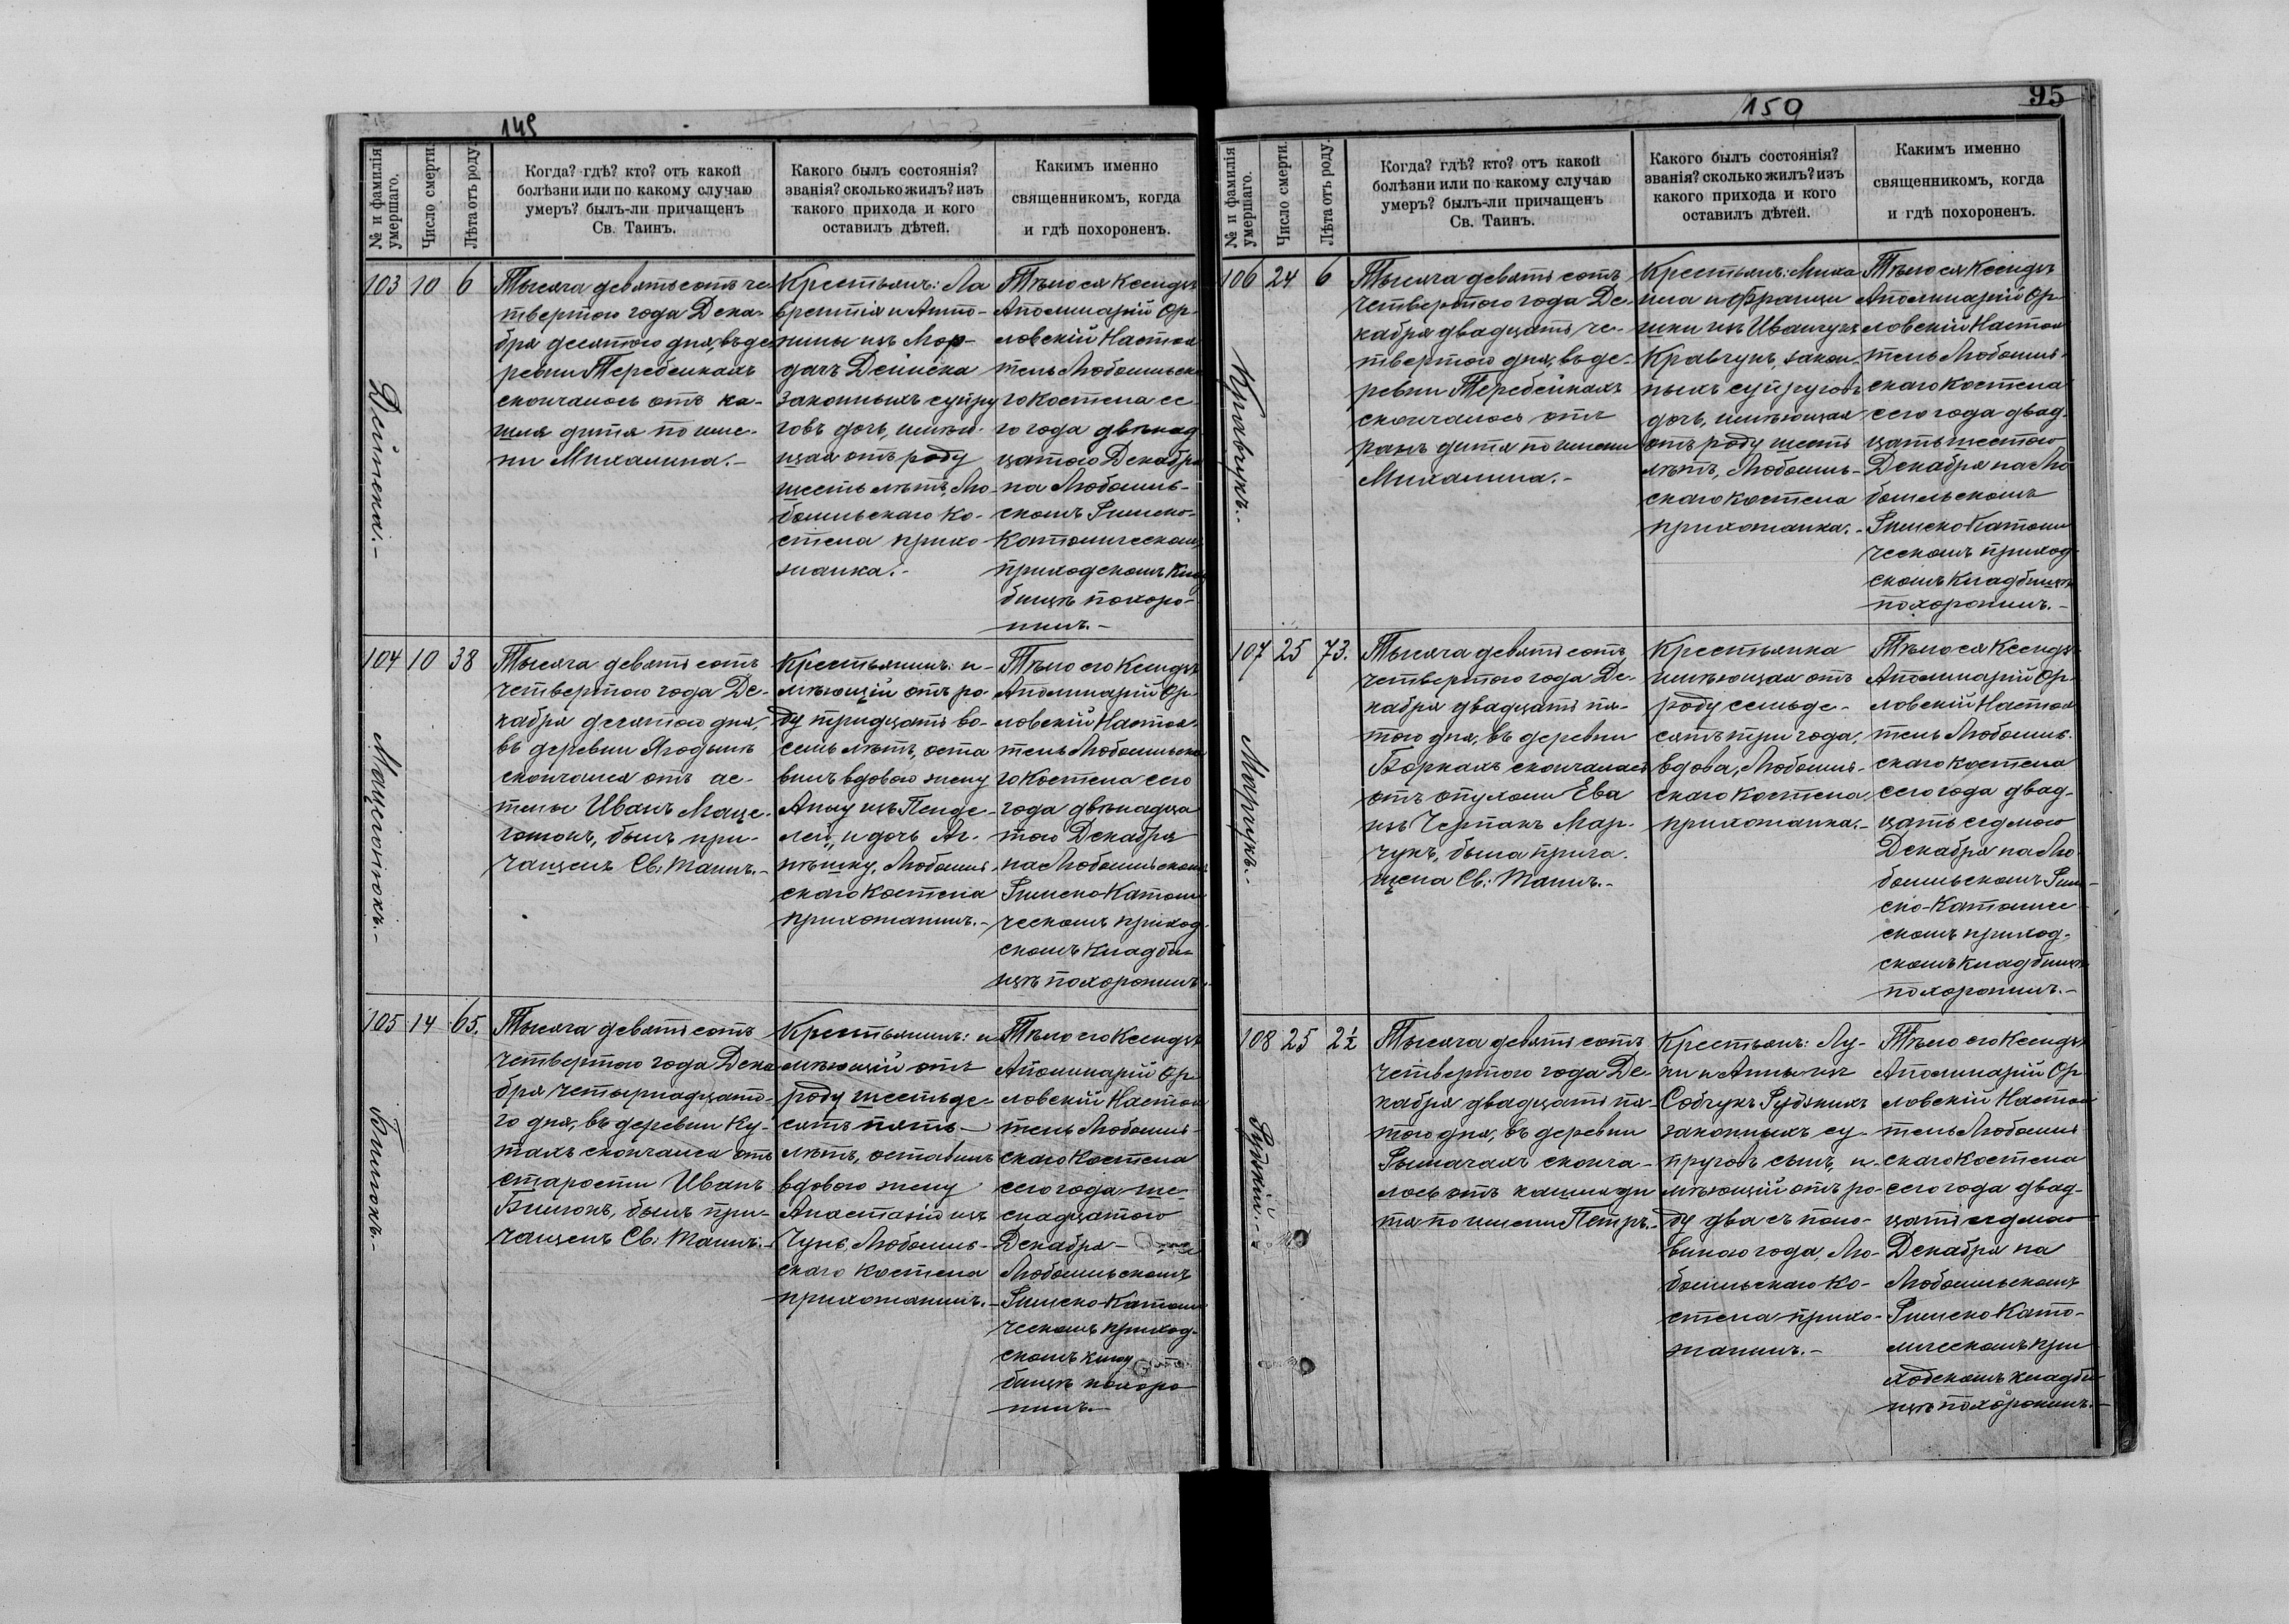 149
№ и фамилія умершаго.
Число смерти.
Лѣта отъ роду.
Когда? гдѣ? кто? отъ какой
болѣзни или по какому случаю
умеръ? былъ-ли причащенъ
Св. Таинъ.
Какого былъ состоянія?
званія? сколько жилъ? изъ
какого прихода и кого
оставилъ дѣтей.
Какимъ именно
священникомъ, когда
и гдѣ похороненъ.
103
10
6
Дейнека.-
Тысяча девятьсотъ че
твертого года Дека-
бря десятого дня, въ де
ревни Теребейкахъ
скончалось отъ ка-
шля дитя по име-
ни Михалина.-
Крестьянъ: Ла
врентія и Анто-
нины изъ Мор-
дачъ Дейнека
законныхъ супру
говъ дочь, имѣю-
щая отъ роду
шесть лѣтъ, Лю-
бомльскаго Ко-
стела прихо
жанка.-
Тѣло ея Ксендзъ
Аполинарій Ор-
ловскій Настоя
тель Любомльска
го Костела се-
го года двѣнад
цатого Декабря
на Любомль-
скомъ Римско-
Католическомъ
приходскомъ клад
бищѣ похоро-
нилъ.-
104
10
38
Мацегонюкъ.-
Тысяча девятьсотъ
четвертого года Де-
кабря десятого дня,
въ деревни Ягодынѣ
скончался отъ ас-
тмы Иванъ Маце-
гонюкъ, былъ при-
чащенъ Св: Таинъ.-
Крестьянинъ: и-
мѣющій отъ ро-
ду тридцать во-
семь лѣтъ, оста
вилъ вдовою жену
Анну изъ Пенде-
лей, и дочь Аг-
нѣшку, Любомль-
скаго Костела
прихожанинъ.-
Тѣло его Ксендзъ
Аполинарій Ор-
ловскій Настоя-
тель Любомльска
го Костела сего
года двѣнадца
того Декабря
на Любомльскомъ
Римско-Католи
ческомъ приход-
скомъ кладби-
щѣ похоронилъ.
105
14
65.
Билюкъ.-
Тысяча девятьсотъ
четвертого года Дека
бря четырнадцато-
го дня, въ деревни Ку-
тахъ скончался отъ
старости Иванъ
Билюкъ, былъ при-
чащенъ Св: Таинъ.-
Крестьянинъ: и
мѣющій отъ
роду шестьде-
сятъ пять-
лѣтъ, оставилъ
вдовою жену
Анастасію изъ
Чунь, Любомль-
скаго Костела
прихожанинъ.-
Тѣло его Ксендзъ
Аполинарій Ор-
ловскій Настоя
тель Любомль-
скаго Костела
сего года ше-
снадцатого
Декабря-
Любомльскомъ
Римско-Католи
ческомъ приход-
скомъ клад
бищѣ похоро
нилъ.-
150
95
№ и фамилія умершаго.
Число смерти.
Лѣта отъ роду.
Когда? гдѣ? кто? отъ какой
болѣзни или по какому случаю
умеръ? былъ-ли причащенъ
Св. Таинъ.
Какого былъ состоянія?
званія? сколько жилъ? изъ
какого прихода и кого
оставилъ дѣтей.
Какимъ именно
священникомъ, когда
и гдѣ похороненъ.
106
24
6
Кравчукъ.-
Тысяча девятьсотъ
четвертого года Де-
кабря двадцать че-
твертого дня, въ де-
ревни Теребейкахъ
скончалось отъ
ранъ дитя по имени
Михалина.-
Крестьянъ: Миха
ила и Францѣ
шки изъ Иванчукъ
Кравчукъ, закон-
ныхъ супруговъ
дочь, имѣющая
отъ роду шесть
лѣтъ, Любомль-
скаго Костела
прихожанка.-
Тѣло ея Ксендзъ
Аполинарій Ор
ловскій Настоя
тель Любомль-
скаго Костела
сего года двад-
цать шестого
Декабря на Лю
бомльскомъ
Римско Католи
ческомъ приход-
скомъ кладбищѣ
похоронилъ.-
107
25
73.
Марчукъ.-
Тысяча девятьсотъ
четвертого года Де-
кабря двадцать пя-
того дня, въ деревни
Боркахъ скончалась
отъ опухоли Ева
изъ Черпакъ Мар-
чукъ, была прича-
щена Св: Таинъ.-
Крестьянка
имѣющая отъ
роду семьде-
сятъ три года,
вдова, Любомль-
скаго Костела
прихожанка.-
Тѣло ея Ксендзъ
Аполинарій Ор-
ловскій Настоя
тель Любомль-
скаго Костела
сего года двад-
цать седмого
Декабря на Лю-
бомльскомъ Рим-
ско-Католиче
скомъ приход-
скомъ кладбищѣ
похоронилъ.-
108
25
2½
Рудзкій.-
Тысяча девятьсотъ
четвертого года Де-
кабря двадцать пя-
того дня, въ деревни
Рымачахъ сконча-
лось отъ кашля ди
тя по имени Петръ.-
Крестьянъ: Лу-
ки и Анны изъ
Собчукъ Рудзкихъ
законныхъ су-
пруговъ сынъ, и-
мѣющій отъ ро-
ду два съ поло-
виною года, Лю-
бомльскаго Ко-
стела прихо-
жанинъ.-
Тѣло его Ксендзъ
Аполинарій Ор
ловскій Настоя
тель Любомль
скаго Костела
сего года двад-
цать седмого
Декабря на
Любомльскомъ
Римско Като-
лическомъ при
ходскомъ кладби-
щѣ похоронилъ.-